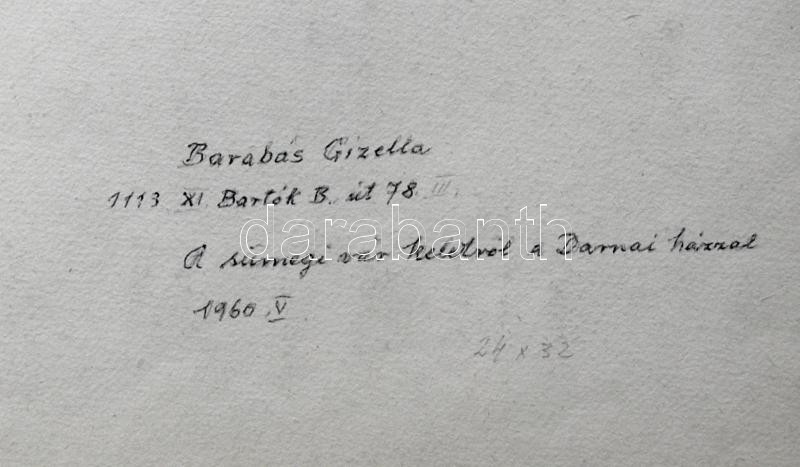 Barabás Gizella
1113 XI. Bartók B. út 78 III.
darabanth
A sümegi vár keletről a Darnai házzal
1960 V
24 x 32